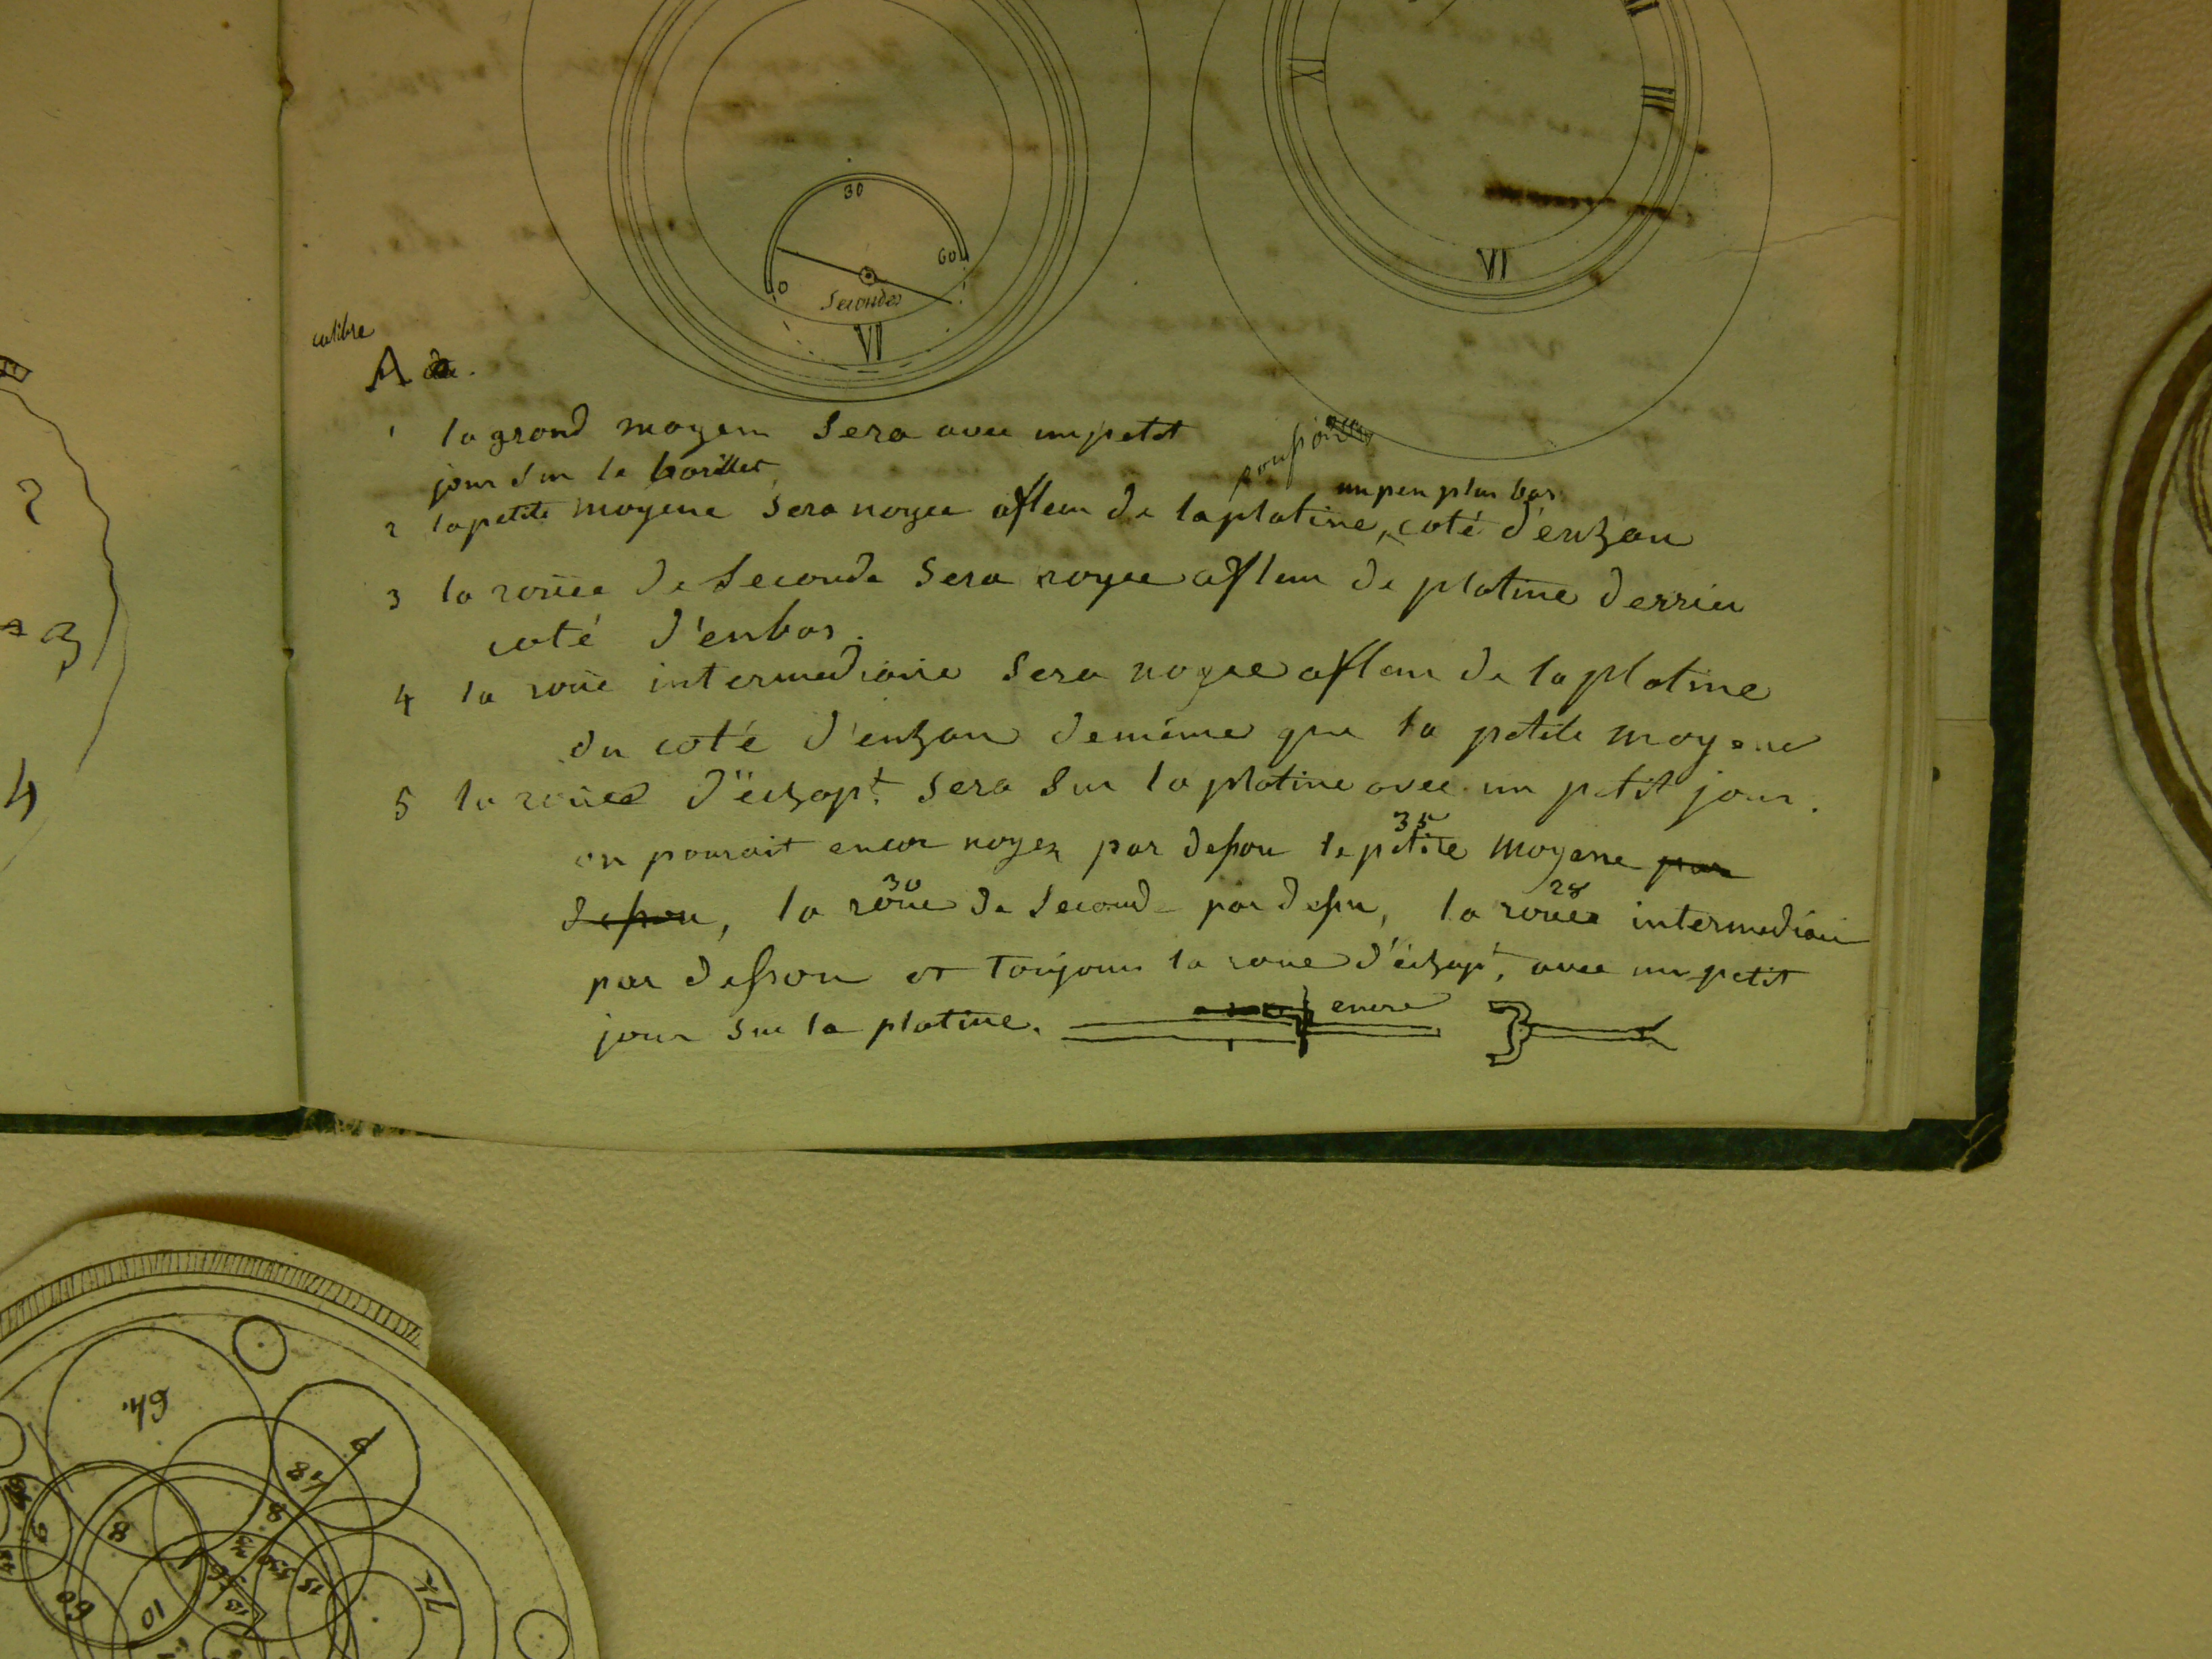 III
IX
VI
30
0
60
Secondes
VI
calibre
A
1 la grand moyen sera avec un petit
jour sur le barillet
un peu plus bas
2 la petite moyene sera noyee afleur de la platine, coté d'enhau
3 la rouëe de seconde sera noyee afleur de platine derrier
coté d'enbas.
4 la rouë intermediaire sera noyee afleur de la platine
du coté d'enhau demême que la petite moyene
5 la rouëe d'échapt. sera sur la platine avec un petit jour.
35
on pourait encor noyer par dessou la petite moyene par
30 28
dessou, la rouë de seconde par dessu, la rouëe intermediair
par dessou et toujours la roue d'échapt. avec un petit
encre
jour sur la platine.
2
3
4
64
48
8
8
60
10
15
74